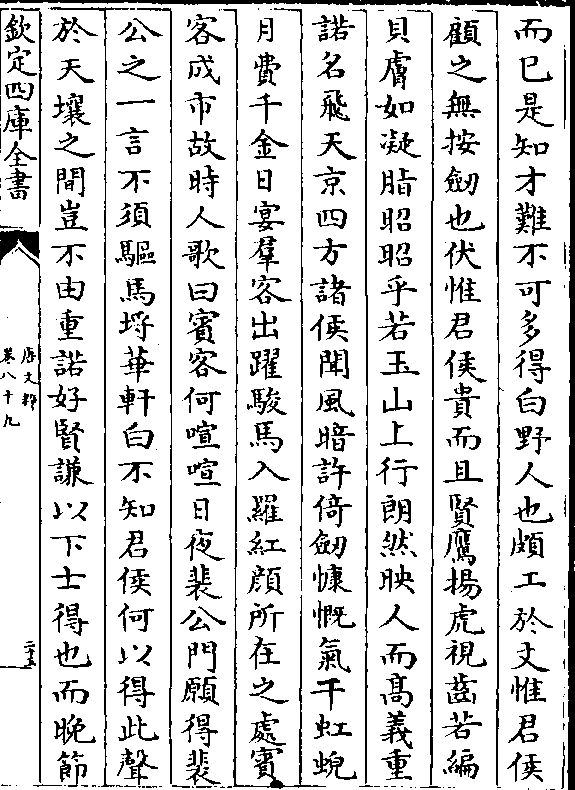 而已是知才難不可多得白野人也頗工於文惟君侯
顧之無按劒也伏惟君侯貴而且賢鷹揚虎視齒若編
貝膚如凝脂昭昭乎若玉山上行朗然映人而髙義重
諾名飛天京四方諸侯聞風暗許倚劒慷慨氣干虹蜺
月費千金日宴羣客出躍駿馬入羅紅顔所在之處賓
客成市故時人歌曰賓客何喧喧日夜裴公門願得裴
公之一言不須驅馬埒華軒白不知君侯何以得此聲
於天壤之間豈不由重諾好賢謙以下士得也而晩節
欽定四庫全書
唐文粹
卷八十九
二十五